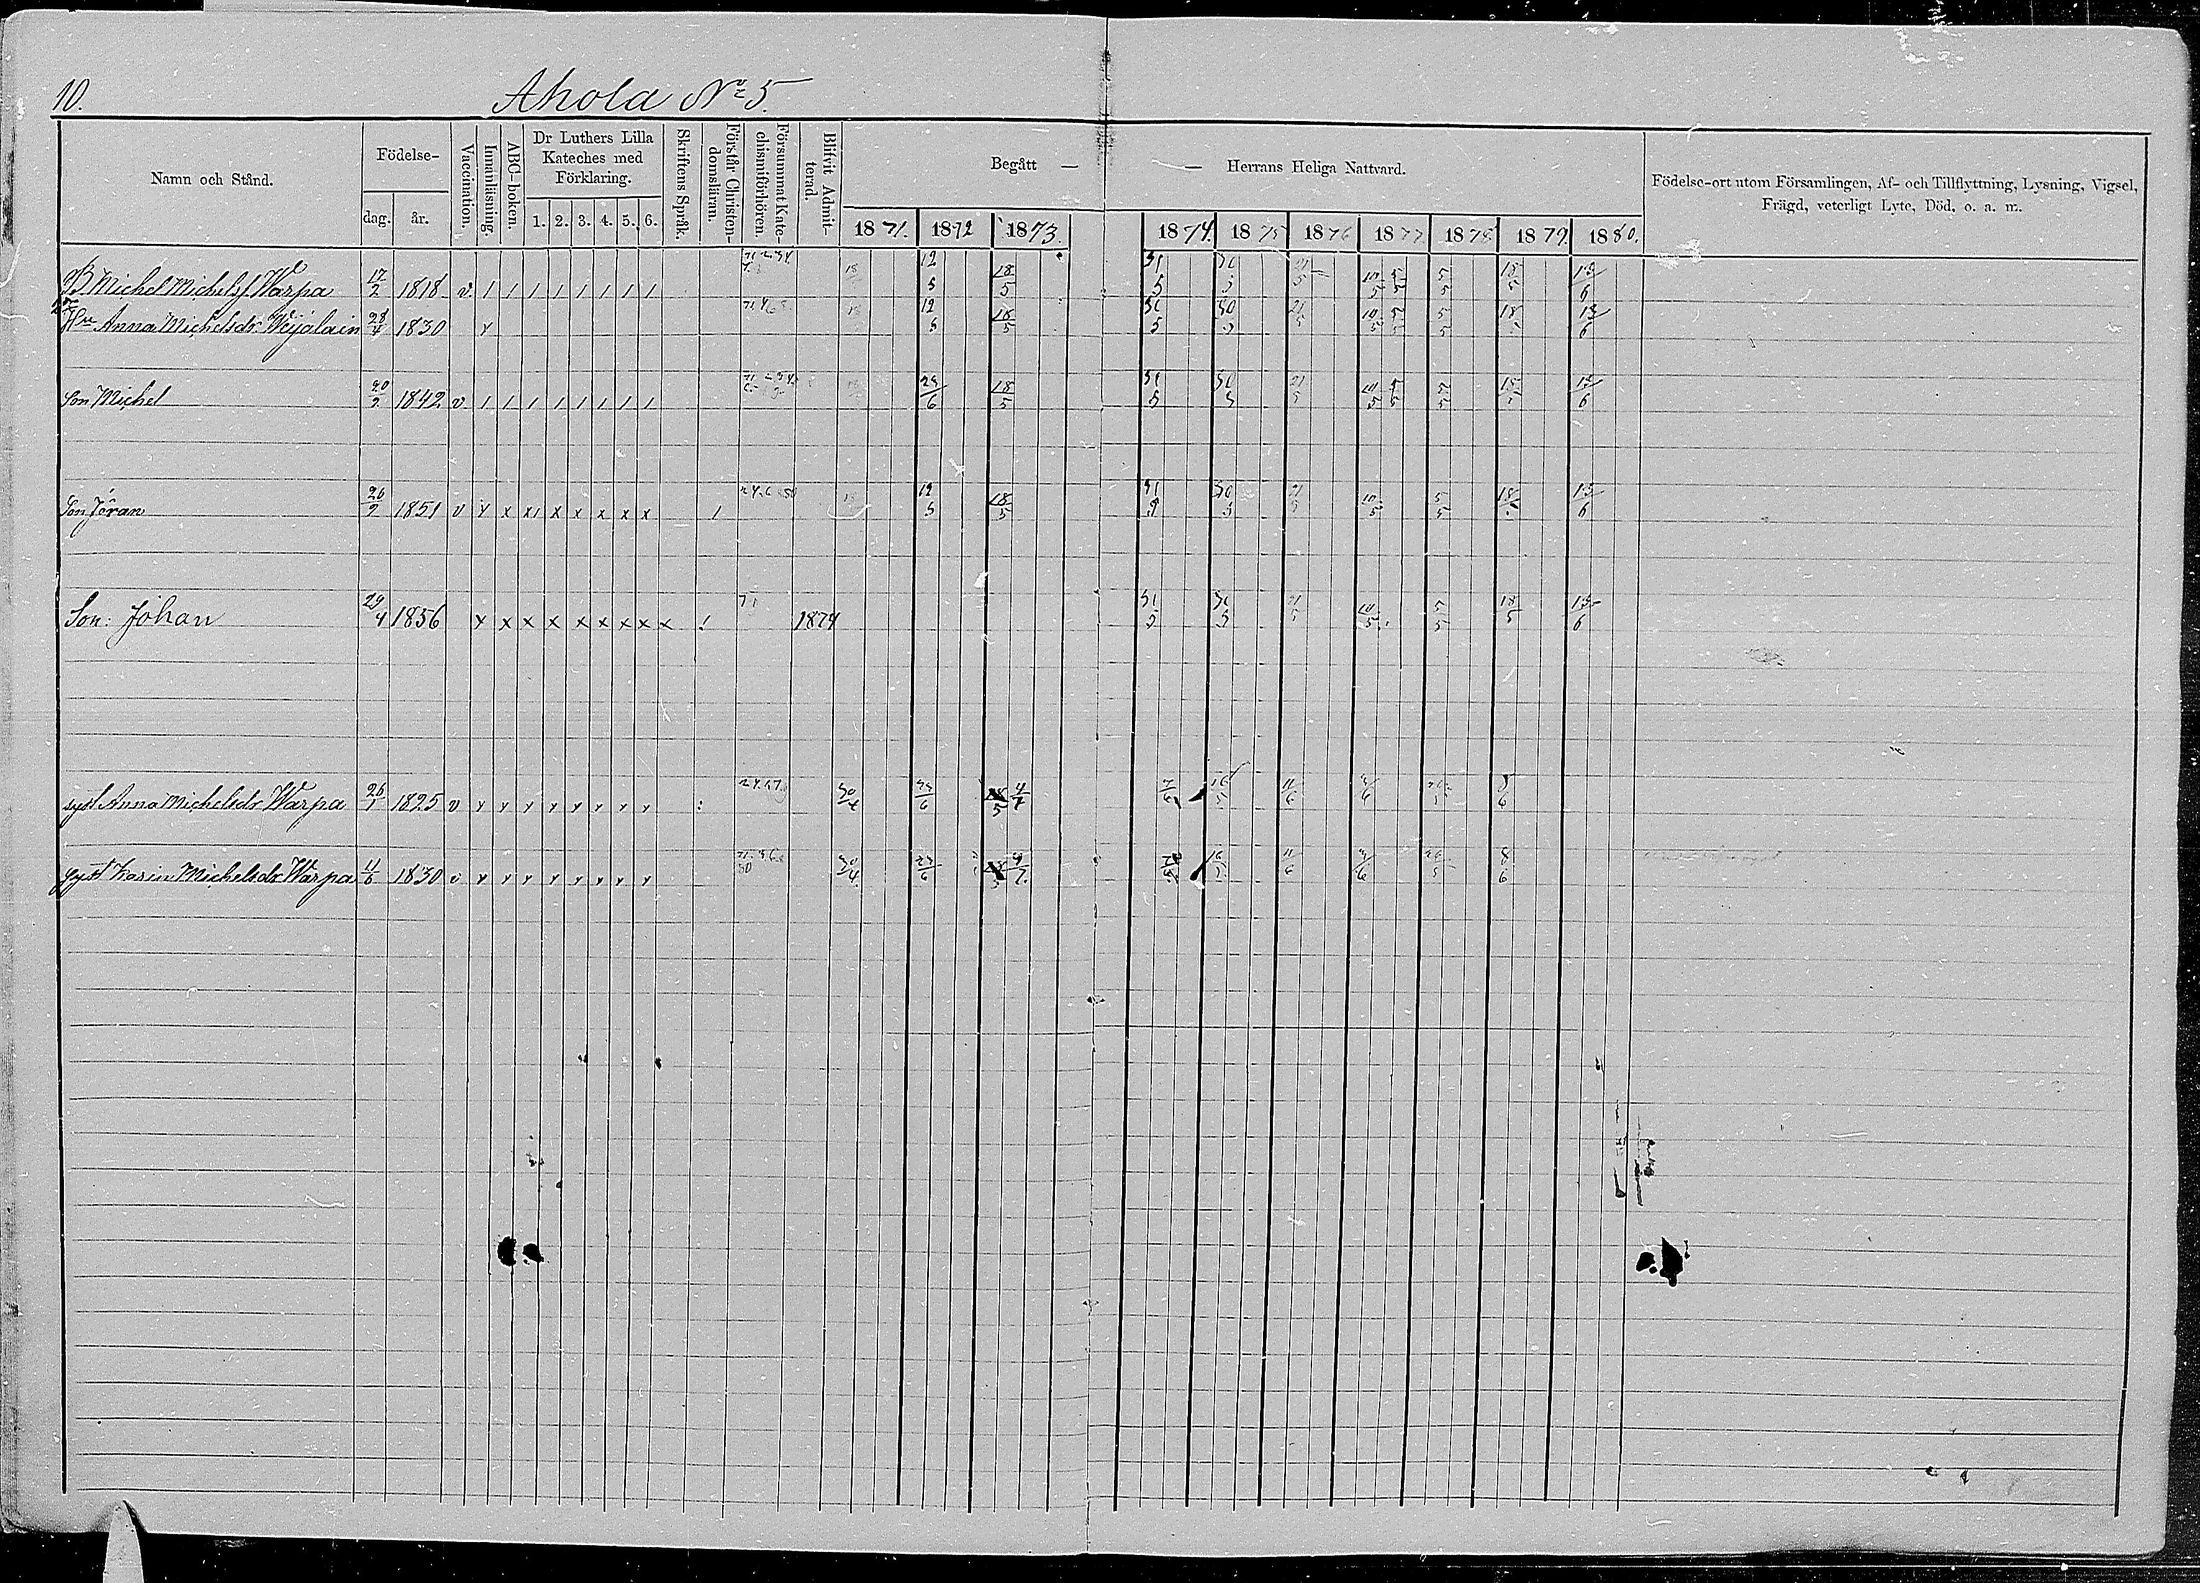 10.
Ahola No 5.
Namn och Stånd.
Födelse-
dag.
år.
Vaccination.
Innanläsning.
ABC-boken.
Dr Luthers Lilla
Kateches med
Förklaring.
1. 2. 3. 4. 5. 6.
Skriftens Språk.
Förstår Christen-
domsläran.
Försummat Kate-
chismiförhören.
Blifvit Admit-
terad.
Begått —
— Herrans Heliga Nattvard.
1871. 1872 1873. 1874. 1875 1876 1877 1878 1879. 1880.
Födelse-ort utom Församlingen, Af- och Tillflyttning, Lysning, Vigsel,
Frägd, veterligt Lyte, Död, o. a. m.
B Michel Michelss. Warpa 17/2 1818 v / / / / / / / / 12/5 18/5 31/5 30/5 21/5 10/5 5/5 5/5 18/5 13/6
Hu Anna Michelsdr 28/4 1830 x 12/5 18/5 31/5 30/5 21/5 10/5 5/5 5/5 18 13/6
Son Michel 20/2 1842 v / / / / / / / / 18/5 31/5 30/5 21/5 10/5 5/5 18 13/6
Son Jöran 26/2 1851 v x x x x x x x x / 12/5 18/5 30/5 21/5 10/5 5/5 18 13/6
Son: Johan 29/4 1856 x x x x x x x x x 1874 30/5 21/5 10/5 5/5 18/5 13/6
syst Anna Michelsdr Warpa 26/1 1825 v x x x x x x x x 30/4 16/5 11/6 8/6
syst Karin Michelsdr Warpa 11/6 1830 v x x x x x x x x 30/4 16/5 11/6 8/6